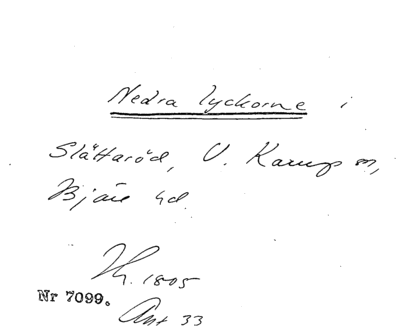 Nedra lyckorne i
Slättaröd, V. Karup sn,
Bjäre hd
Th. 1805
Nr 7099.
Ant 33